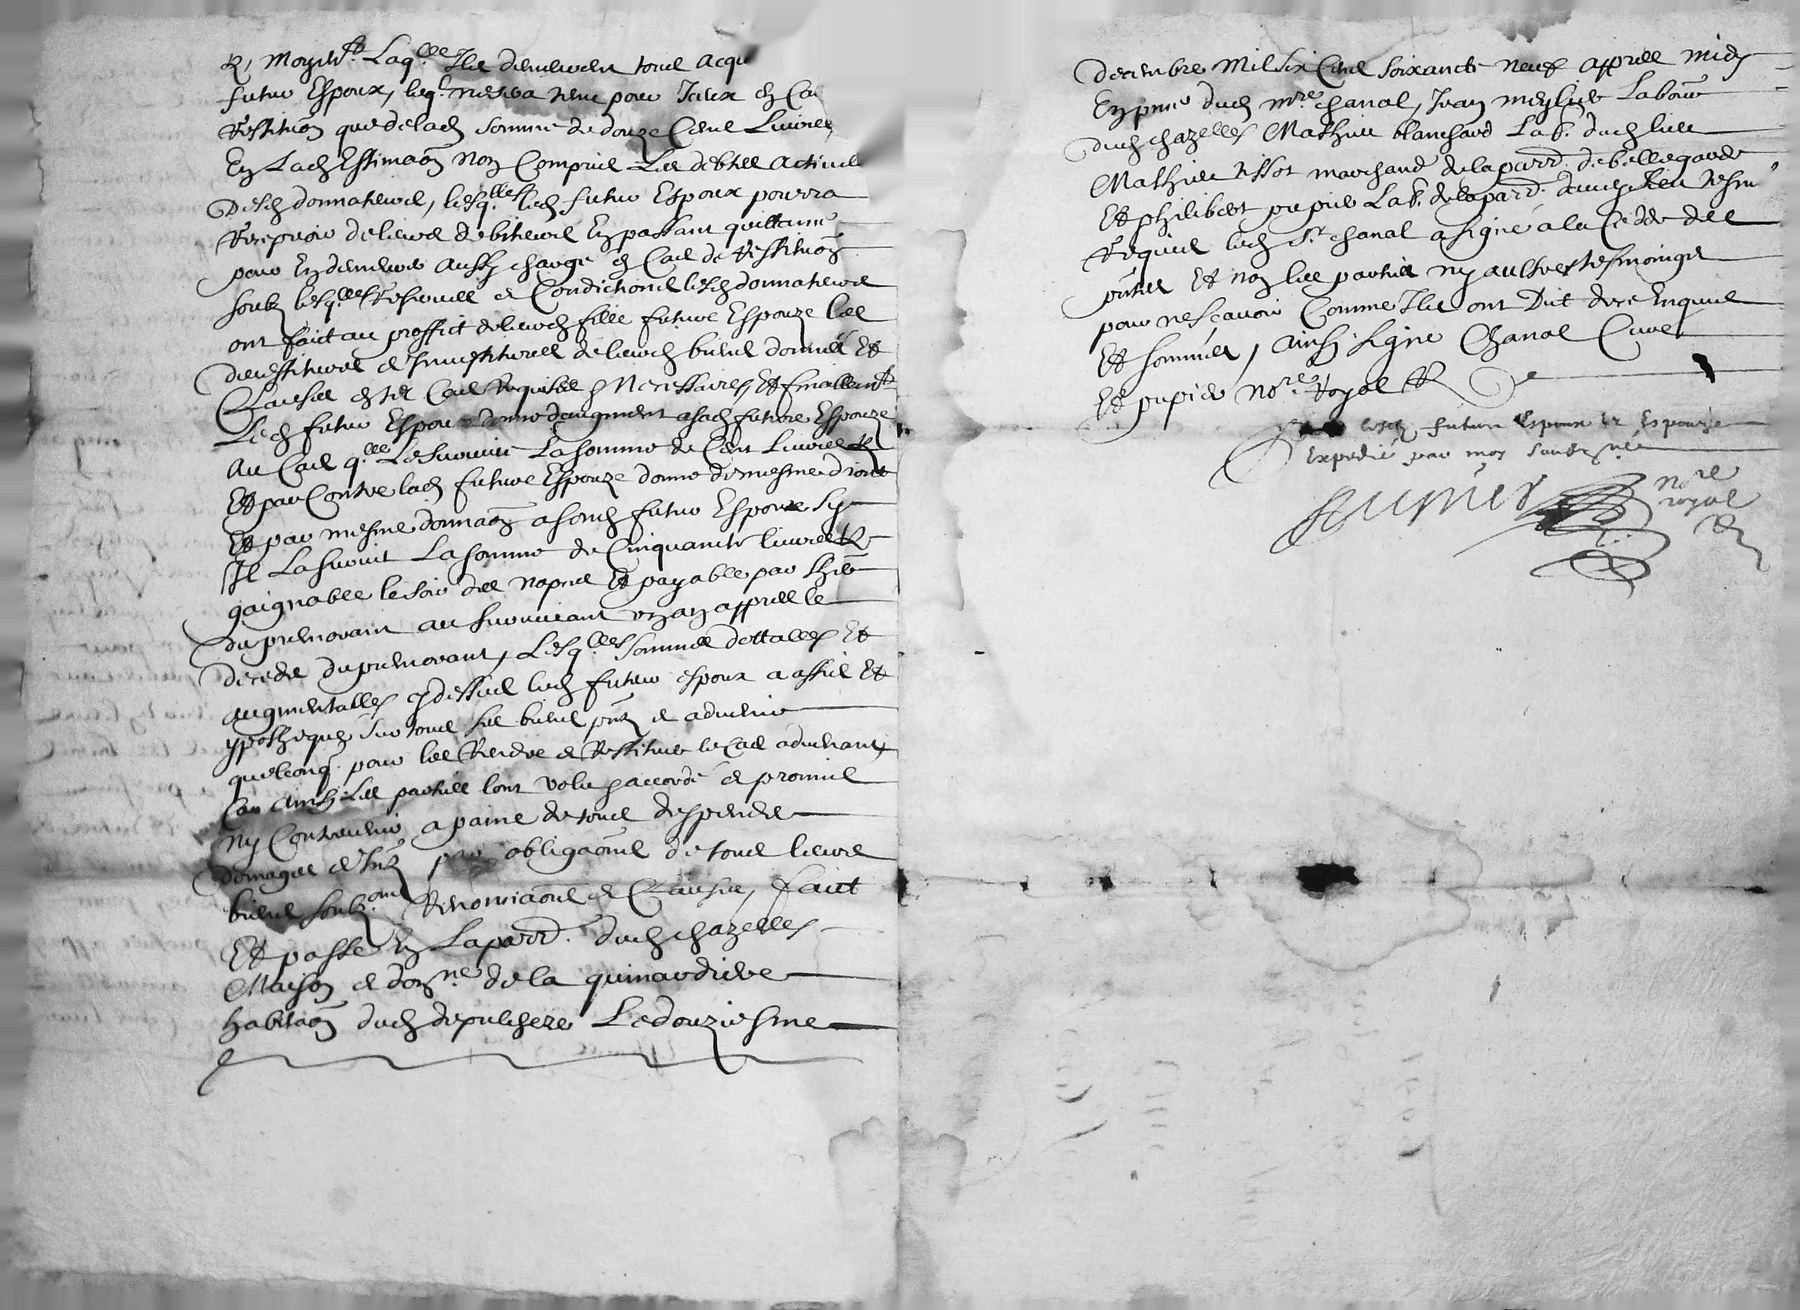 Et moyent. Laqlle Ilz demeurent tous acqu
futur Espoux, leql ne sera tenu pour Iceux en Cas
Restituon que de lad somme de douze Cens Livres
En Lad Estimaon Non Comprins Les debtes actives
Desd donnateurs, lesqlles led futur Espoux pourra
Recepvoir de leurs debiteurs En passant quittance
pour En demeurer aussy chargé en Cas de restitution
soubz lesqlles reserves et Conditions lesd donnateurs
ont fait au proffict de leurd fille future Espouze les
devestitures et Investitures de leursd biens donnés Et
Clauses en tel Cas Requises et Necessaires, Et finallemt
Led futur Espoux donne d'augment a sad future Espouze
Au Cas qlle Le survive La somme de Cent Livres Et
Et par Contre lad future Espouze donne de mesme droit
Et par mesme donnaon a sond futur Espoux sy
Il La survit La somme de Cinquante livres Et
gaignables le soir des nopces Et payables par l'hers
du premorant au survivant un an appres le
decedz du premorant, Lesqlles sommes dottalles Et
augmentalles cy dessus led futur espoux a assis Et
ypothequé sur tous ses biens pnts et advenir
quelconq. pour les Rendre et Restituer le Cas advenant
Car ainsy Les parties l'ont voulu accordé et promis
Ny Contrevenir a paine de tous despens
domages et Intz par obligaons de tous leurs
biens soubzons Renonciaons et Clauses, fait
Et passé En La parr. dud chazelles
Maison et domne de la quinardiere
habitaon dud depulchere Le douziesme
decembre Mil six Cens soixante neuf appres midy
En pnce dud mre chanal, Jean meylieu Labour
dud chazelles Mathieu blanchard Lab. dud lieu
Mathieu tissot marchand de la parr. de bellegarde
Et philibert pupier Lab. de la parr. dud lieu tesm
Requis led sr chanal a signé a la Cedde des
pntes Et non les parties ny aultres tesmoings
pour ne scavoir Comme Ilz ont Dit de ce Enquis
Et sommés, ainsy signé Chanal Curé
Et pupier Nore royal Et
lesd futurs Espoux et Espouze
Expedié par moy soubzsigné
pupier nore
royal